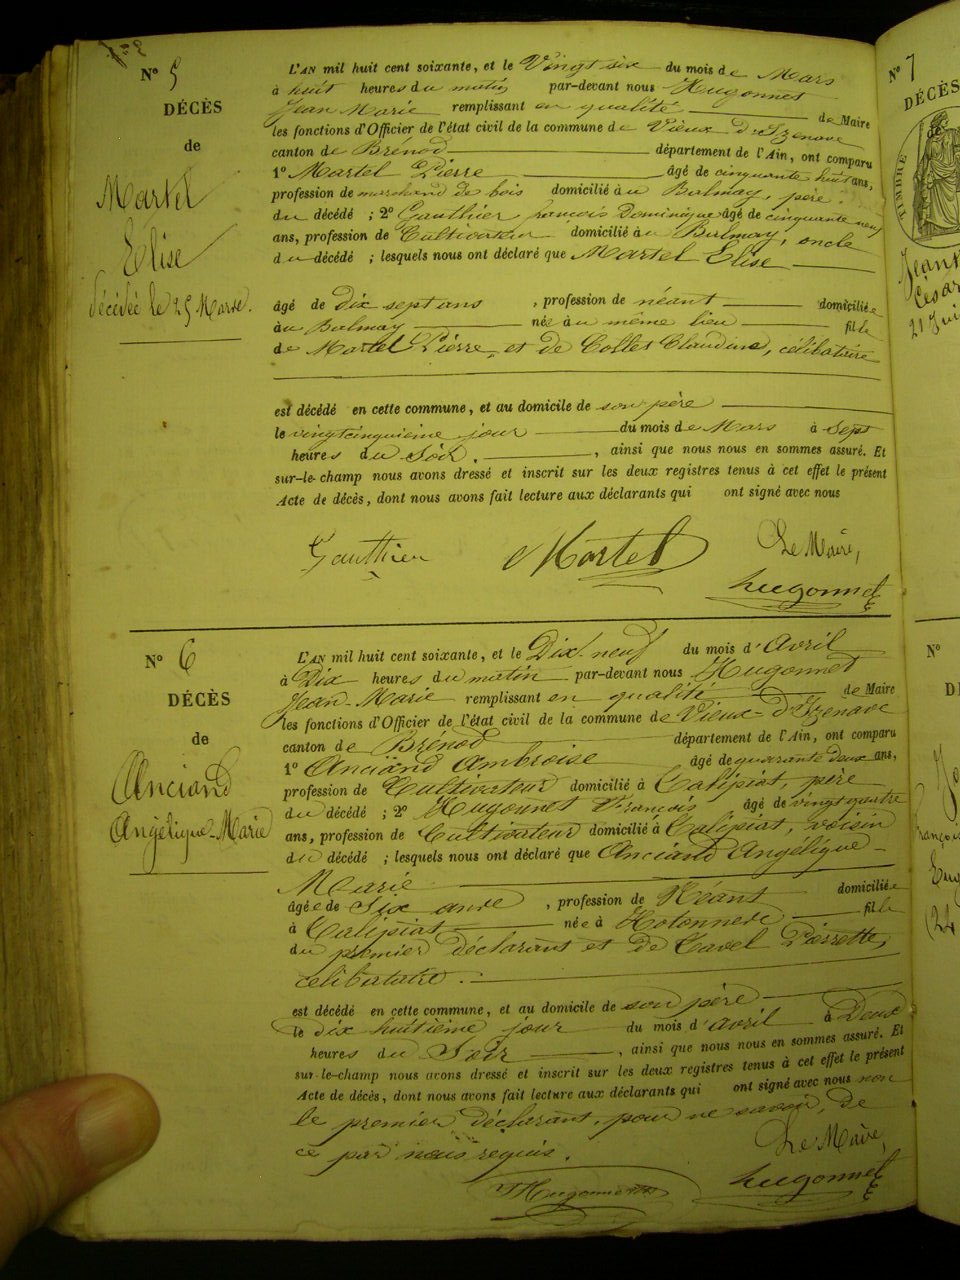 N° 5
DÉCÈS
de
Martel
Elise
décédée le 25 Mars.
L'AN mil huit cent soixante, et le Vingt six du mois de Mars
à huit heures du matin par-devant nous Hugonnet
Jean Marie remplissant en qualité de Maire
les fonctions d'Officier de l'état civil de la commune de Vieux d'Izenave
canton de Brénod département de l'Ain, ont comparu
1° Martel Pierre âgé de cinquante huit ans,
profession de marchand de bois domicilié à Balmay, père
du décédé ; 2° Gauthier françois Dominique âgé de cinquante neuf
ans, profession de Cultivateur domicilié au Balmay, oncle
du décédé ; lesquels nous ont déclaré que Martel Elise
âgé de dix sept ans , profession de néant domiciliée
au Balmay née au même lieu fille
de Martel Pierre et de Collet Claudine, célibataire
est décédé en cette commune, et au domicile de son père
le vingtcinquième jour du mois de Mars à sept
heures du Soir. , ainsi que nous nous en sommes assuré. Et
sur-le-champ nous avons dressé et inscrit sur les deux registres tenus à cet effet le présent
Acte de décès, dont nous avons fait lecture aux déclarants qui ont signé avec nous
Gauthier Martel Le Maire,
hugonnet
N° 6
DÉCÈS
de
Anciand
Angélique-Marie
L'AN mil huit cent soixante, et le Dix-neuf du mois d'avril
à Dix heures du matin par-devant nous Hugonnet
Jean-Marie remplissant en qualité de Maire
les fonctions d'Officier de l'état civil de la commune de Vieux-d'Izenave
canton de Brénod département de l'Ain, ont comparu
1° Anciand Ambroise âgé de quarante deux ans,
profession de Cultivateur domicilié à Talipiat, père
du décédé ; 2° Hugonnet François âgé de vingt quatre
ans, profession de Cultivateur domicilié à Talipiat, voisin
du décédé ; lesquels nous ont déclaré que Anciand Angélique-
Marie
âgée de Six ans , profession de Néant domiciliée
à Talipiat née à Hotonnes fille
du premier déclarant et de Cavel Pierrette,
célibataire.
est décédé en cette commune, et au domicile de son père
le dix huitième jour du mois d'avril à Deux
heures du Soir , ainsi que nous nous en sommes assuré. Et
sur-le-champ nous avons dressé et inscrit sur les deux registres tenus à cet effet le présent
Acte de décès, dont nous avons fait lecture aux déclarants qui ont signé avec nous non
le premier déclarant, pour ne savoir, de
ce par nous requis.
Le Maire,
Hugonnet hugonnet
N° 7
DÉCÈS
TIMBRE
21 Jui
N°